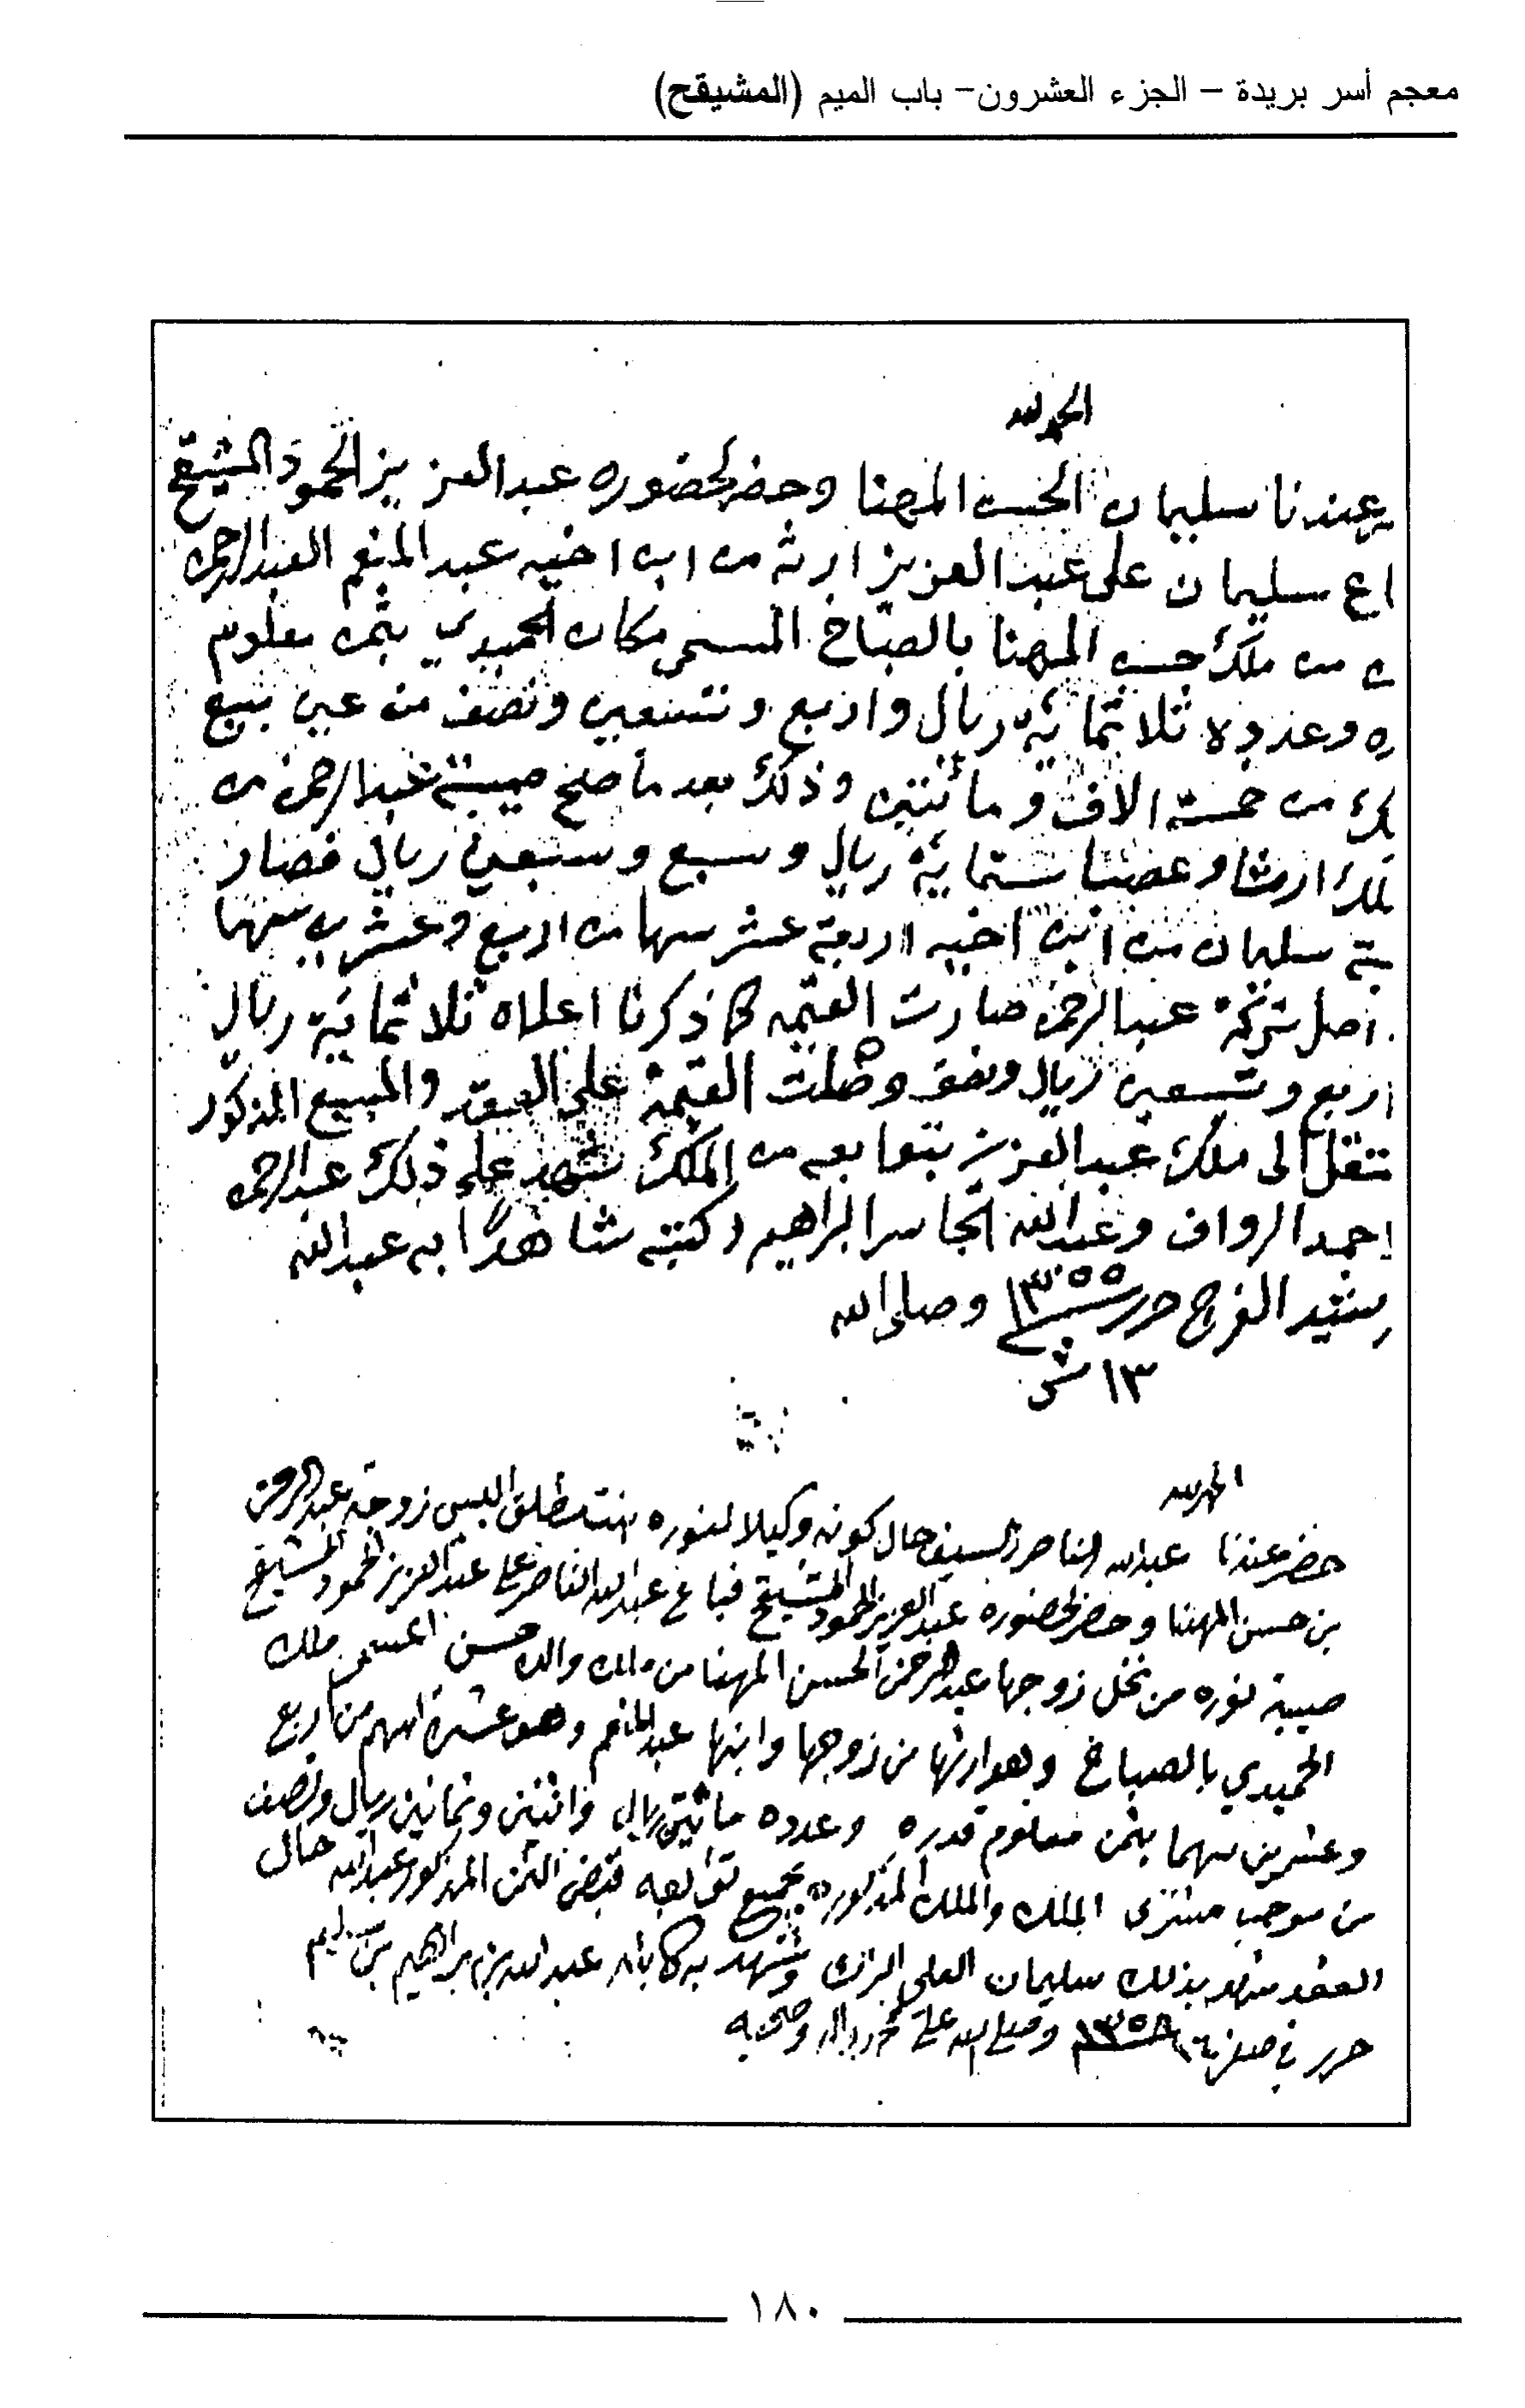 معجم أسر بريدة – الجزء العشرون– باب الميم (المشيقح)
الحمد لله
عندنا سليمان الحسن المهنا وحضر لحضوره عبد العزيز الحمود المشيقح
اع سليمان على عبد العزيز ارثه من ابن اخيه عبد المنعم العبد الرحمن
من ملك حسن المهنا بالصباخ المسمى مكان الحميدي بثمن معلوم
ه وعدده ثلاثماية ريال واربع وتسعين ونصف من عين بيع
لك من خمسة الاف ومائتين وذلك بعد ما صح صيبة عبد الرحمن من
لك ارثا وعصبا ستماية ريال وسبع وسبعين ريال فصار
بة سليمان من ابن اخيه اربعة عشر سهما من اربع وعشرين سهما
اصل تركة عبد الرحمن صارت القيمه كما ذكرنا اعلاه ثلاثماية ريال
اربع وتسعين ريال ونصف وصلت القيمة على العقد والمبيع المذكور
نتقل الى ملك عبد العزيز بتوابعه من الملك شهد على ذلك عبد الرحمن
احمد الرواف وعبد الله الجاسر البراهيم وكتبه شاهدًا به عبد الله
رشيد الفرج حرر ١٣٥٥ وصلى الله
١٣ ش
الحمد لله
حضر عندنا عبد الله الناصر السيف حال كونه وكيلا لنوره بنت مطلق زوجة عبد الرحمن
بن حسن المهنا وحضر لحضوره عبد العزيز الحمود المشيقح فباع عبد الله الناصر على عبد العزيز الحمود المشيقح
صيبة نوره من نخل زوجها عبد الرحمن الحسن المهنا من ملك والده حسن المسمى ملك
الحميدي بالصباخ وهو ارثها من زوجها وابنها عبد المنعم وهو عشرة اسهم من اربع
وعشرين سهما بثمن معلوم قدره وعدده مائتين ريال واثنين وثمانين ريال ونصف
من موجب مشترى الملك والملك المذكور بجميع توابعه قبض الثمن المذكور عبد الله حال
العقد شهد بذلك سليمان العلي وشهد به كاتبه عبد الله بن ابراهيم بن سليم
حرر في صفر ١٣٥٨ وصلى الله على محمد واله وصحبه
١٨٠